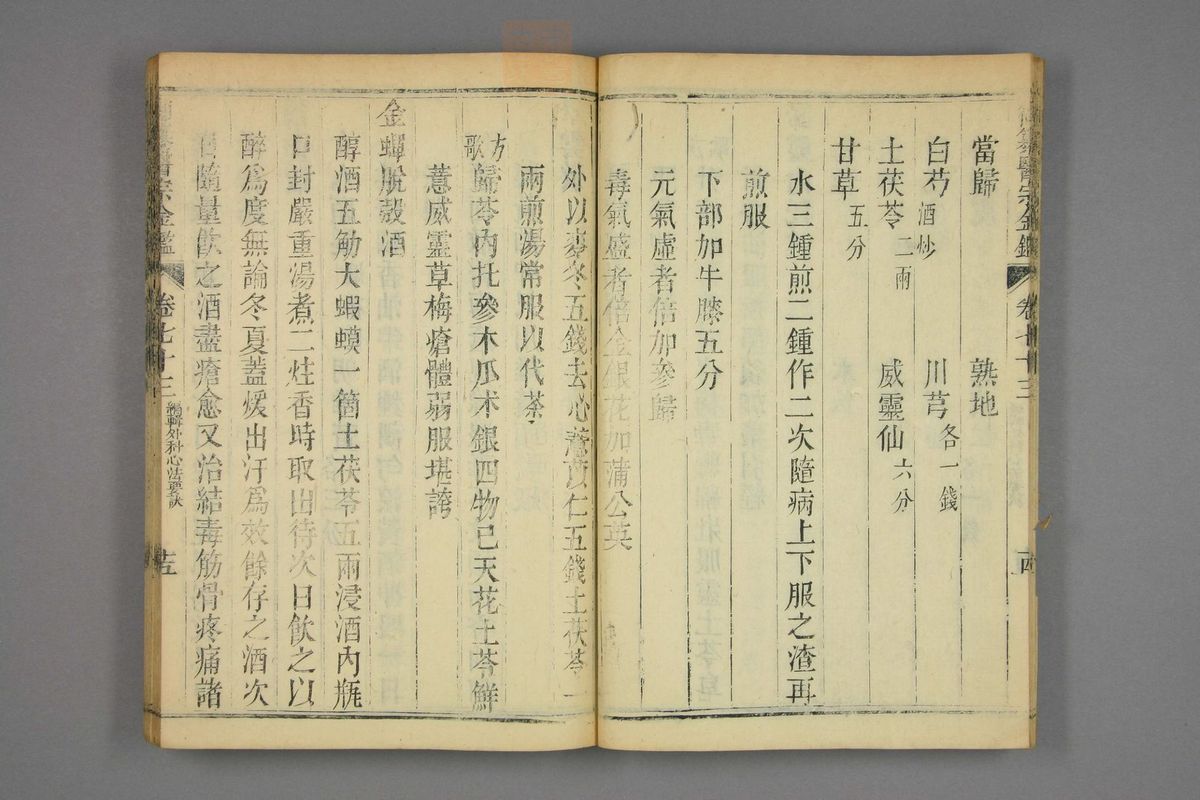 當歸 熟地
白芍 酒炒 川芎 各一錢
土茯苓 二兩 威靈仙 六分
甘草 五分
水三鍾煎二鍾作二次隨病上下服之渣再
煎服
下部加牛膝五分
元氣虛者倍加參歸
毒氣盛者倍金銀花加蒲公英
外以麥冬五錢去心薏苡仁五錢土茯苓一
兩煎湯常服以代茶
方歌 歸苓內托參木瓜术銀四物己天花土苓鮮
薏威靈草梅瘡體弱服堪誇
金蟬脫殼酒
醇酒五觔大蝦蟆一箇土茯苓五兩浸酒內瓶
口封嚴重湯煮二炷香時取出待次日飲之以
醉為度無論冬夏蓋煖出汗為效餘存之酒次
隨量飲之酒盡瘡愈又治結毒筋骨疼痛諸
醫宗金鑑 卷七十三
醫宗金鑑 卷七十三 編輯外科心法要訣